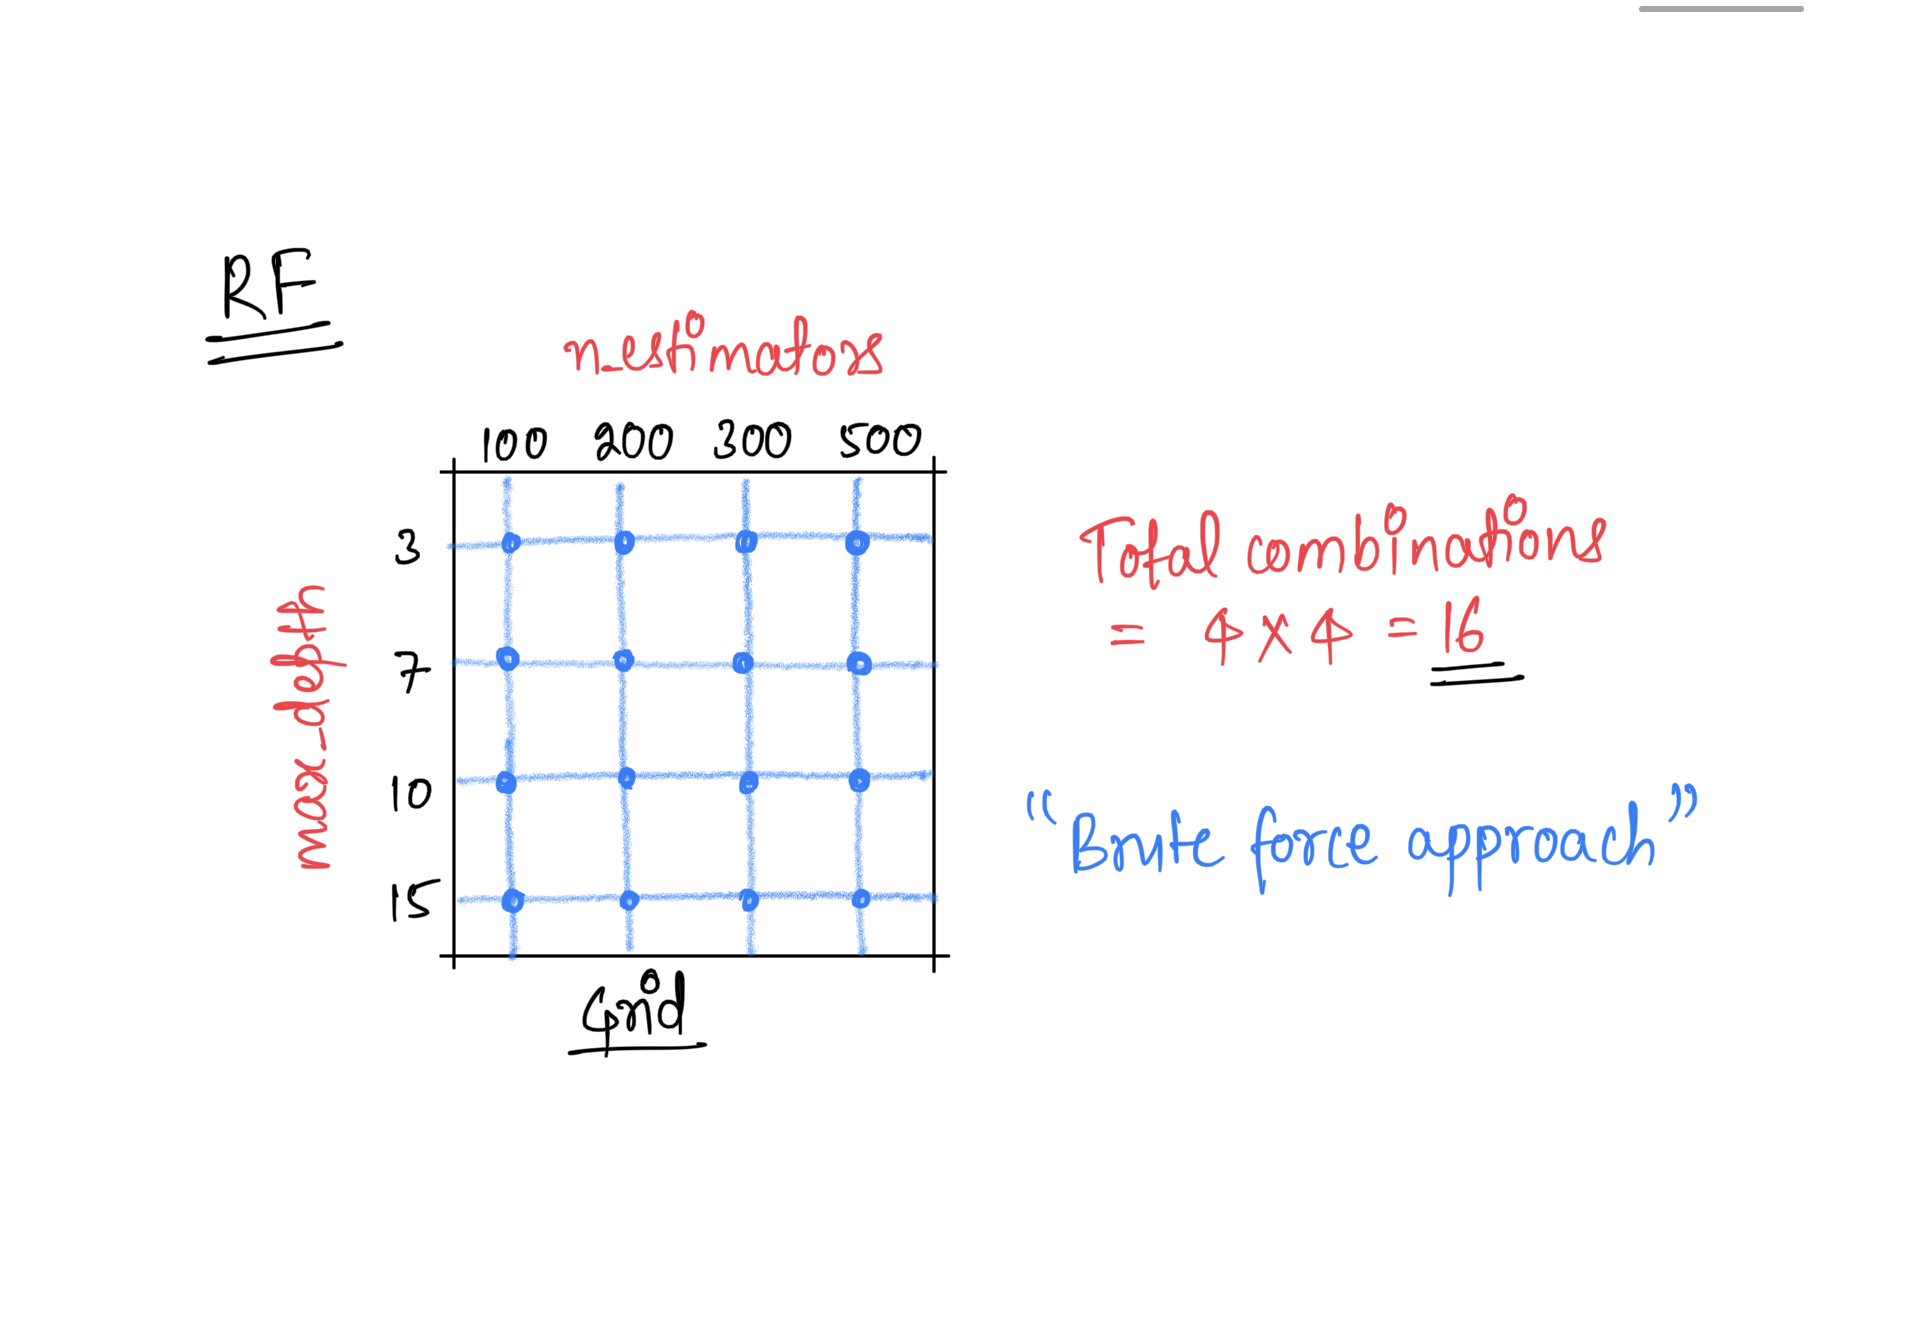 RF
n_estimators
100 200 300 500
max_depth
3
7
10
15
Grid
Total combinations
= 4 x 4 = 16
"Brute force approach"